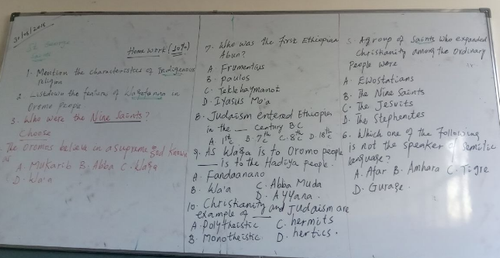 Home work (20%)
1. Mention the characteristics of Indigenous religion
2. the feature of in Oromo people
3. Who were the Nine Saints?
Choose
The oromos believe in a supreme God known
A. Mukarib B. Abba C. Waqa
D. Wa'a
7. Who was the first Ethiopian
Abun?
A. Frumentius
B. paulos
C. Teklehaymanot
D. Iyasus Mo'a
8. Judaism entered Ethiopia
in the ___ century BC.
9. As Waqa is to Oromo people
___ is to the Hadiya people.
A. Fandaanano
B. Wa'a C. Abba Muda
D. Ayyana
10. Christianity and Judaism are
example of ___
A. Polytheistic C. hermits
B. Monotheistic D. hertics.
5. A group of Saints who expanded
Christianity among the ordinary
People were
A. Ewostatians
B. The Nine Saints
C. The Jesuits
D. The Stephanites
6. Which one of the following
is not the speaker of Semitic
language?
A. Afar B. Amhara C. Tigre
D. Gurage.